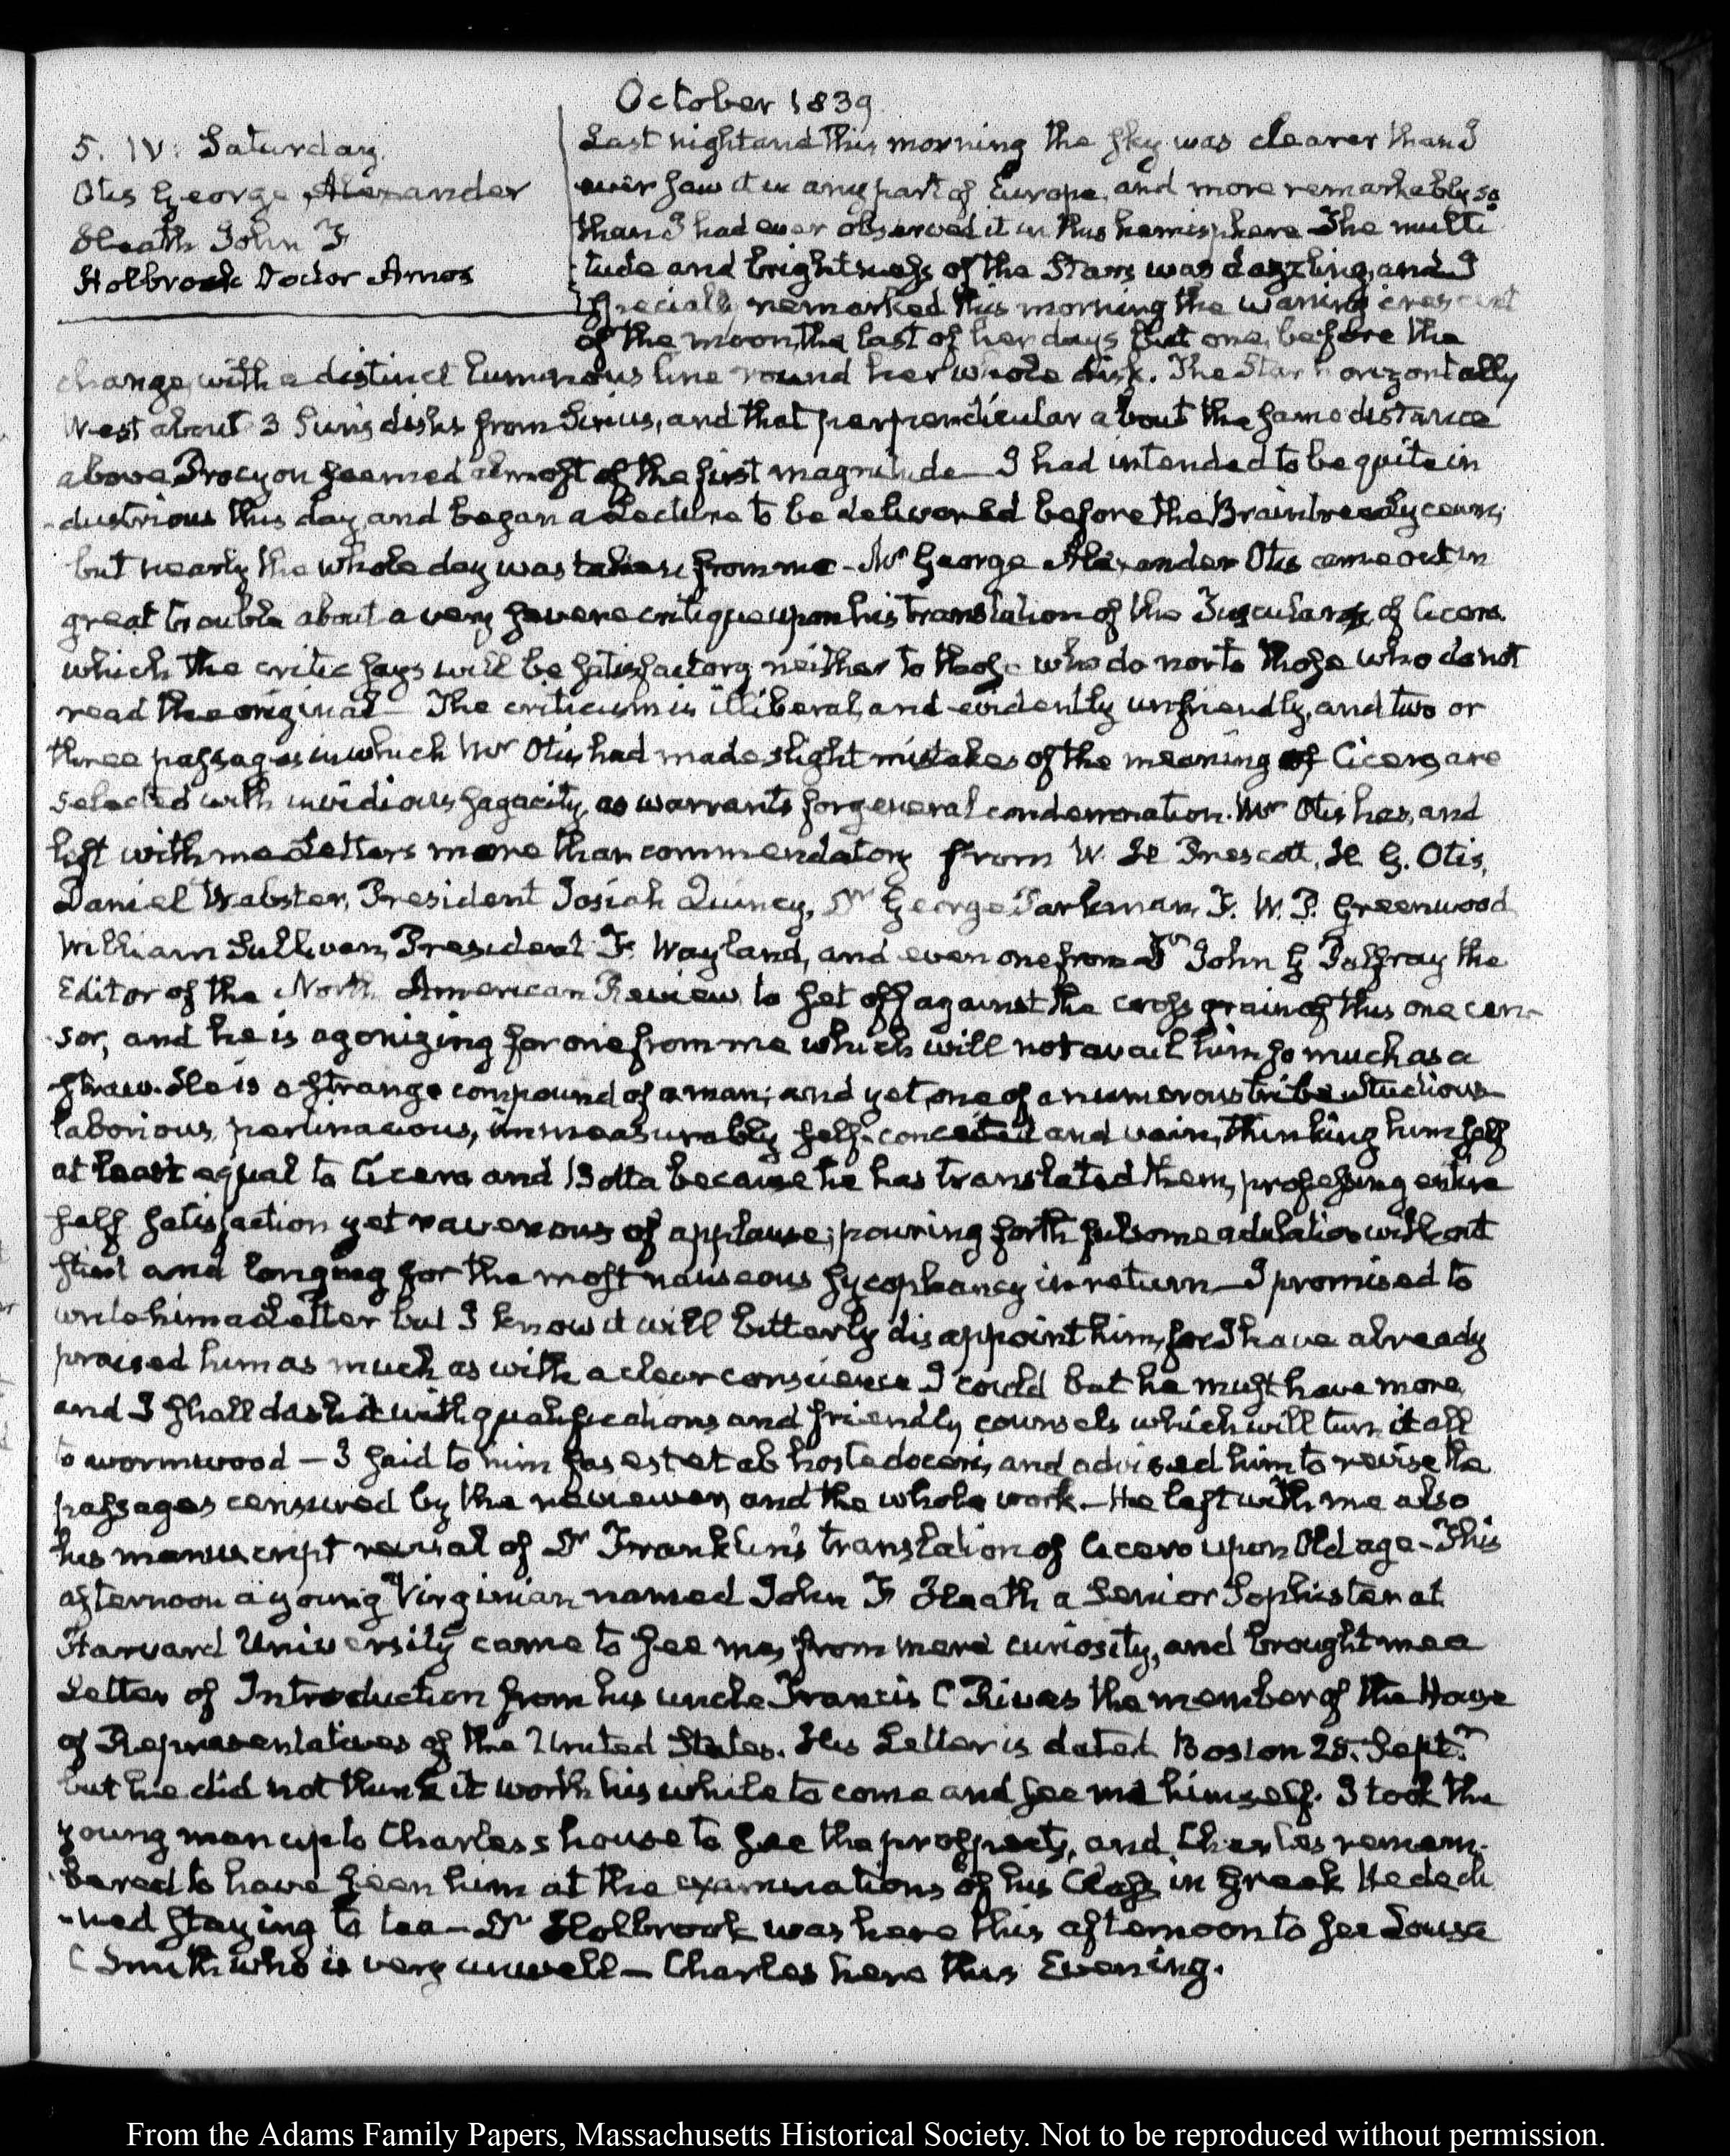 October 1839.
5. IV: Saturday.
Otis George Alexander
Heath John F
Holbrook Doctor Amos
Last night and this morning the sky was clearer than I
ever saw it in any part of Europe, and more remarkably so
than I had ever observed it in this hemisphere. The multi
tude and brightness of the Stars was dazzling, and I
specially remarked this morning the waning crescent
of the moon, the last of her days but one, before the
change, with a distinct luminous line round her whole disk. The Star horizontally
West about 3 Sun's disks from Sirius, and that perpendicular about the same distance
above Procyon seemed almost of the first magnitude— I had intended to be quite in
dustrious this day and began a Lecture to be delivered before the Braintree Lyceum;
but nearly the whole day was taken from me - Mr George Alexander Otis came out in
great trouble about a very severe critique upon his translation of the Tusculans of Cicero.
which the critic says will be satisfactory neither to those who do nor to those who do not
read the original— The criticism is illiberal, and evidently unfriendly, and two or
three passages in which Mr Otis had made slight mistakes of the meaning of Cicero, are
selected with invidious sagacity, as warrants for general condemnation. Mr Otis has, and
left with me Letters more than commendatory from W. H. Prescott, H. G. Otis,
Daniel Webster, President Josiah Quincy, Dr George Parkman, F. W. P. Greenwood
William Sullivan, President F. Wayland, and even one from Dr John G Palfray the
Editor of the North American Review, to set off against the cross grain of this one cen-
sor, and he is agonizing for one from me which will not avail him so much as a
straw. He is a strange compound of a man; and yet, one of a numerous tribe studious
laborious, pertinacious, immeasurably self-conceited and vain, thinking himself
at least equal to Cicero and Botta because he has translated them, professing entire
self satisfaction yet ravenous of applause; pouring forth fulsome adulation without
stint and longing for the most nauseous sycophancy in return— I promised to
write him a Letter but I know it will bitterly disappoint him, for I have already
praised him as much as with a clear conscience I could but he must have more,
and I shall dash it with qualifications and friendly counsels which will turn it all
to wormwood — I said to him fas est et ab hoste doceri, and advised him to revise the
passages censured by the reviewer, and the whole work.— He left with me also
his manuscript revisal of Dr Franklin's translation of Cicero upon Old age— This
afternoon a young Virginian named John F Heath a Senior Sophister at
Harvard University came to see me, from mere curiosity, and brought me a
Letter of Introduction from his uncle Francis E Rives the member of the House
of Representatives of the United States. His Letter is dated Boston 25. Septr
but he did not think it worth his while to come and see me himself. I took the
young man up to Charles's house to see the prospects, and Charles remem-
bered to have seen him at the examinations of his Class in Greek He decli
-ned staying to tea— Dr Holbrook was here this afternoon to see Louisa
C Smith who is very unwell— Charles here this Evening.
From the Adams Family Papers, Massachusetts Historical Society. Not to be reproduced without permission.